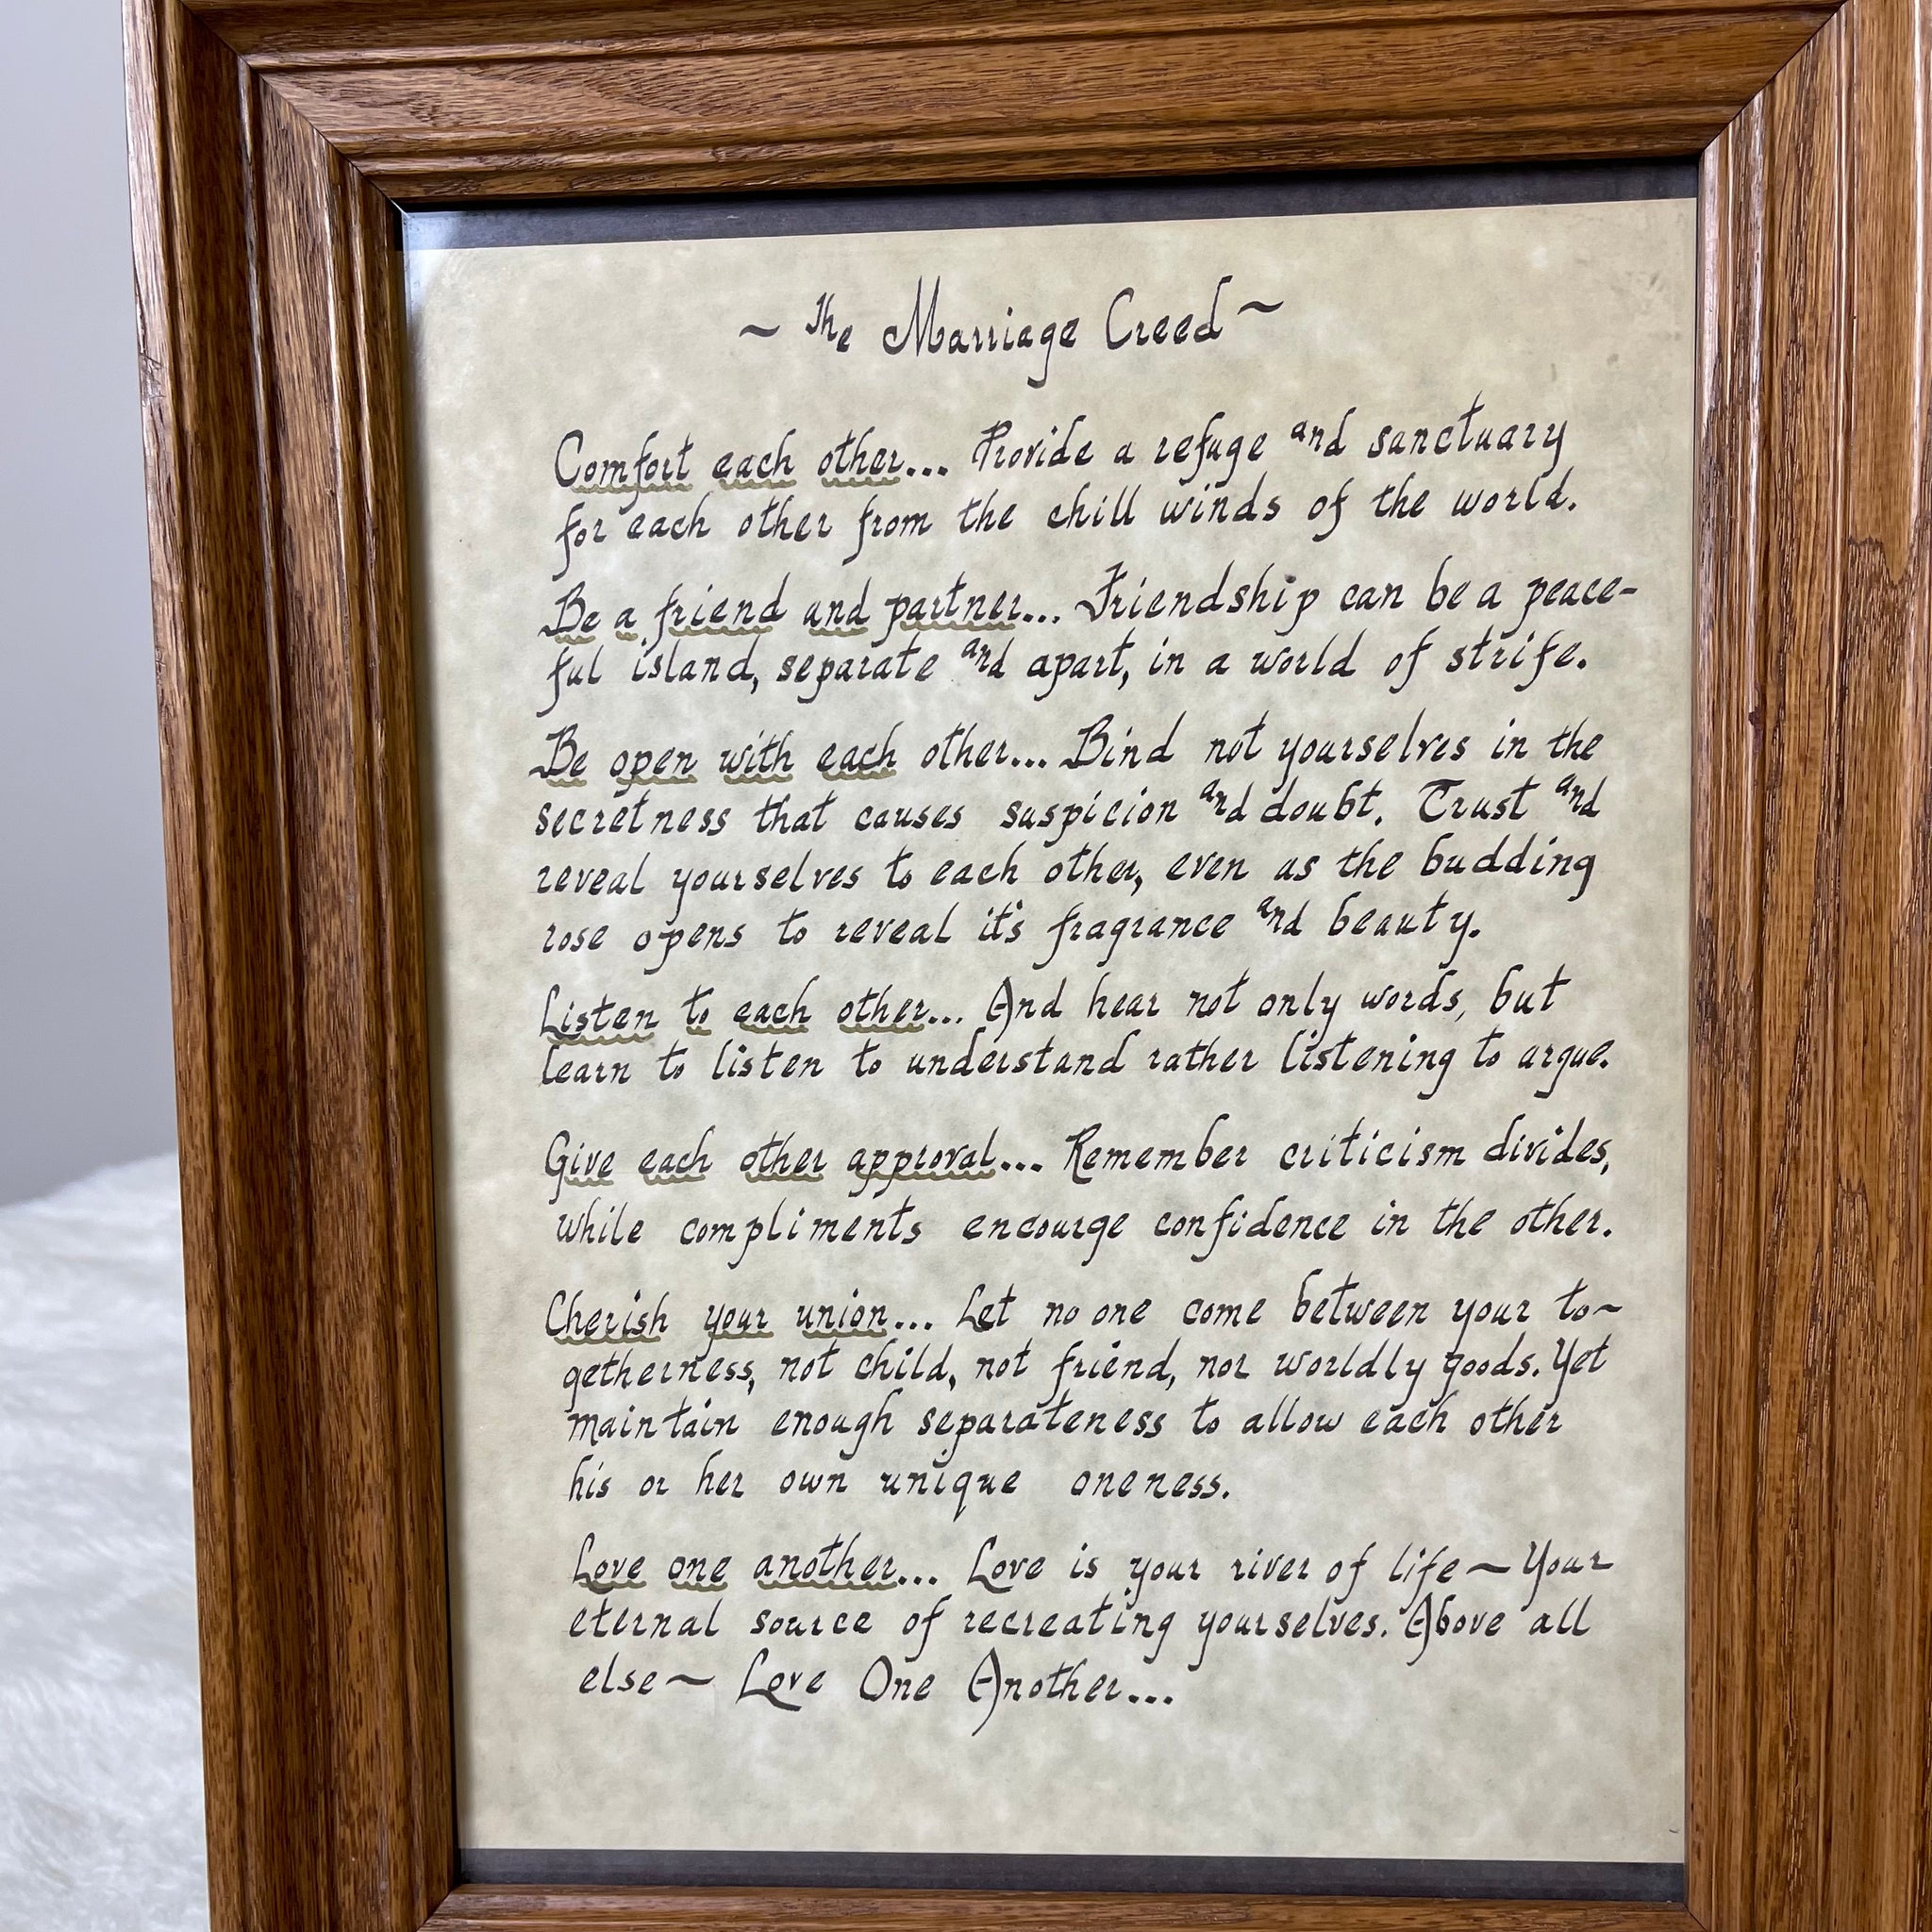 ~ The Marriage Creed ~
Comfort each other... Provide a refuge and sanctuary
for each other from the chill winds of the world.
Be a friend and partner... Friendship can be a peace-
ful island, separate and apart, in a world of strife.
Be open with each other... Bind not yourselves in the
secretness that causes suspicion and doubt. Trust and
reveal yourselves to each other, even as the budding
rose opens to reveal it's fragrance and beauty.
Listen to each other... And hear not only words, but
learn to listen to understand rather listening to argue.
Give each other approval... Remember criticism divides,
while compliments encourge confidence in the other.
Cherish your union... Let no one come between your to~
getherness, not child, not friend, nor worldly goods. Yet
maintain enough separateness to allow each other
his or her own unique oneness.
Love one another... Love is your river of life ~ Your
eternal source of recreating yourselves. Above all
else ~ Love One Another...